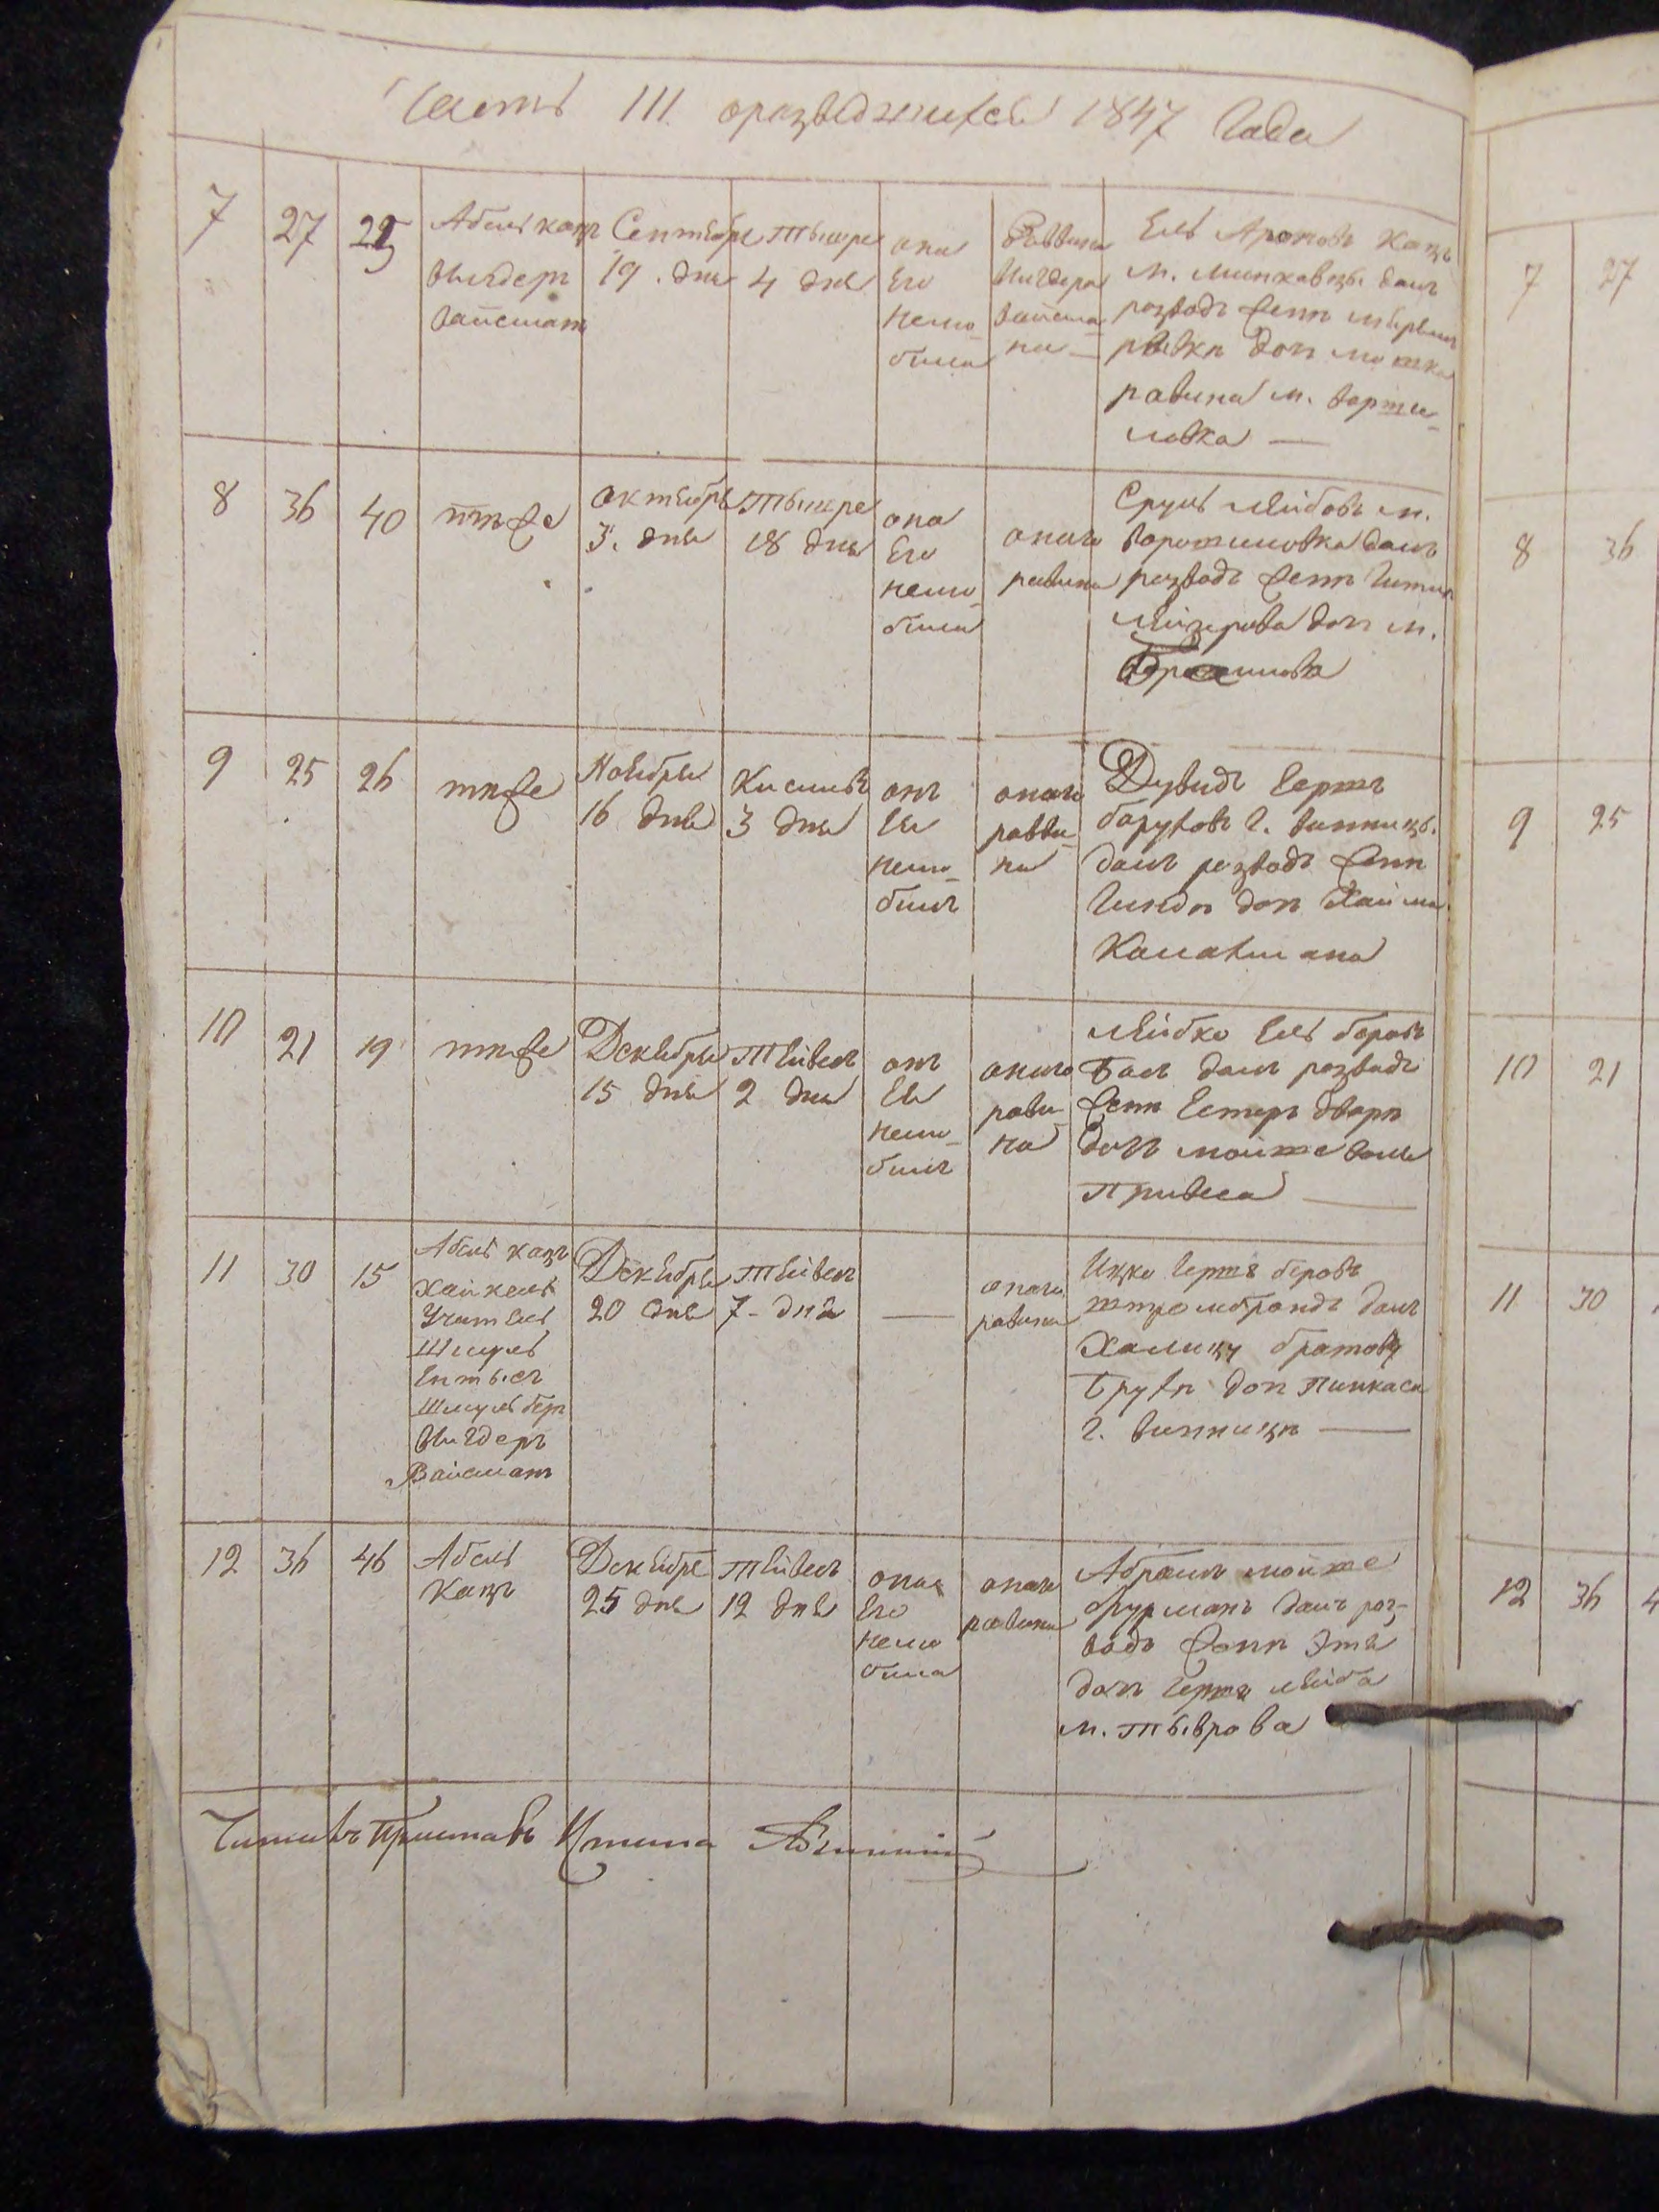 Часть III о разведжихся 1847 Года
7 27 25
Абель кацъ
Вигдеръ
Вайсманъ
Сентября
19. дня
Тышре
4 дня
она
Его
нелю-
била
Раввина
Вигдера
Вайсма-
на
Ель Ароновъ Кацъ
м. Миньковцы далъ
розводъ жене
ривки доч. мошка
равина м.Ворши-
ловка
8 36 40
теже
Октября
3. дня
Тышре
18 дня
она
Его
нелю-
била
онаго
равина
Сруль Лейбовъ м.
Ворошиловка далъ
розводъ жене Гитли
Лейзерова доч. м.
9 25 26
теже
Ноября
16 дня
Кислевъ
3 дня
онъ
Ея
нелю-
билъ
онаго
равви-
на
Дувидъ Гершъ
баруховъ г. винницы.
далъ розводъ жене
Гинде доч. Хаима
10 21 19
теже
Декабря
15 дня
Тейвесъ
2 дня
онъ
Ея
нелю-
билъ
онаго
рави-
на
Лейбко Ель беровъ
далъ розводъ
жене Естеръ дворе
доч. мойше
11 30 15
Абель кацъ
Хайкель
Учитель
Шмуль
Шмуль беръ
Вигдеръ
Вайсманъ
Декабря
20 дня
Тейвесъ
7 - дня
онаго
равина
Ицко Гершъ беровъ
штромбрандъ далъ
Халицу братову
Брухе доч. Пинкаса
г. винницы
12 36 46
Абель
Кацъ
Декабря
25 дня
Тейвесъ
12 дня
она
Его
нелю
била
онаго
равина
Абрамъ мойше
фурманъ далъ роз-
водъ жене Этя
доч. Герша Лейба
м. Тыврова
Читалъ Приставъ
7 27
8 36
9 25
10 21
11 30
12 36 4